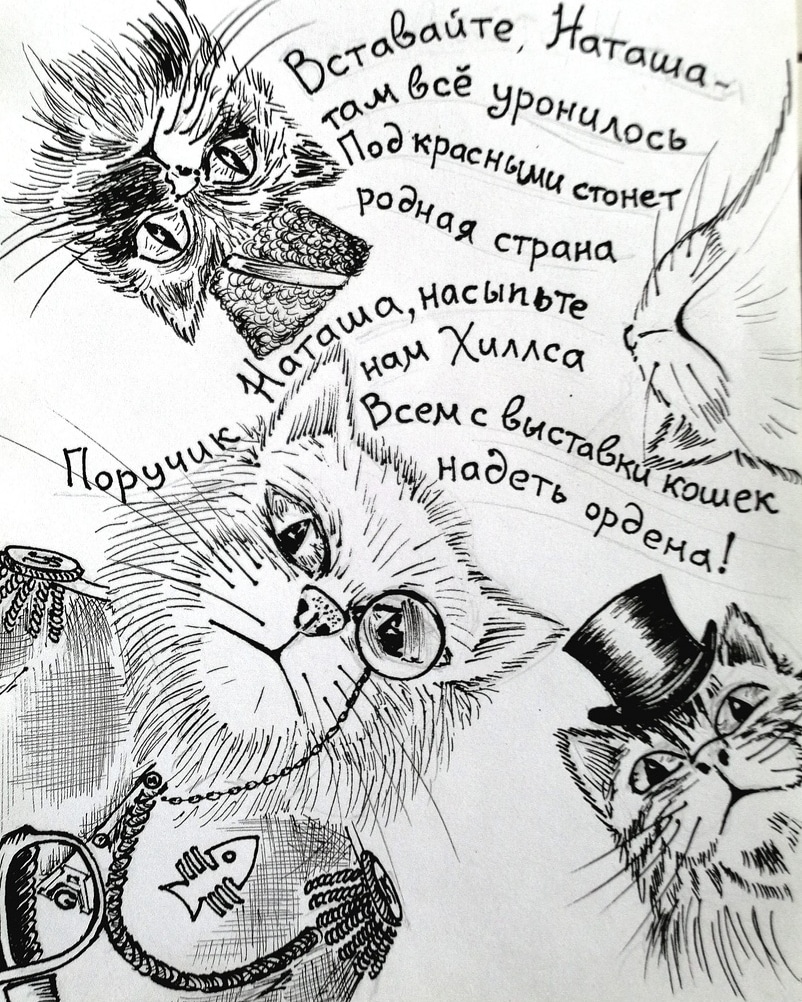 Вставайте, Наташа-
там всё уронилось
Под красными стонет
родная страна
Поручик Наташа, насыпьте
нам Хиллса
Всем с выставки кошек
надеть ордена!